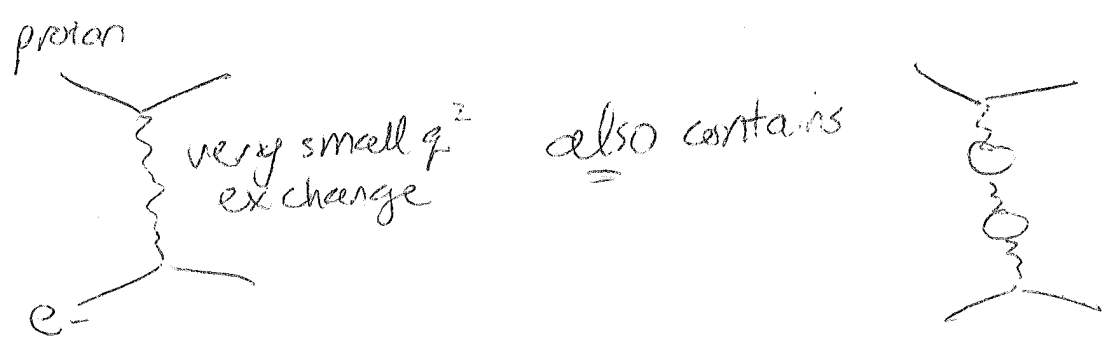 proton
very small q²
exchange
also contains
e-